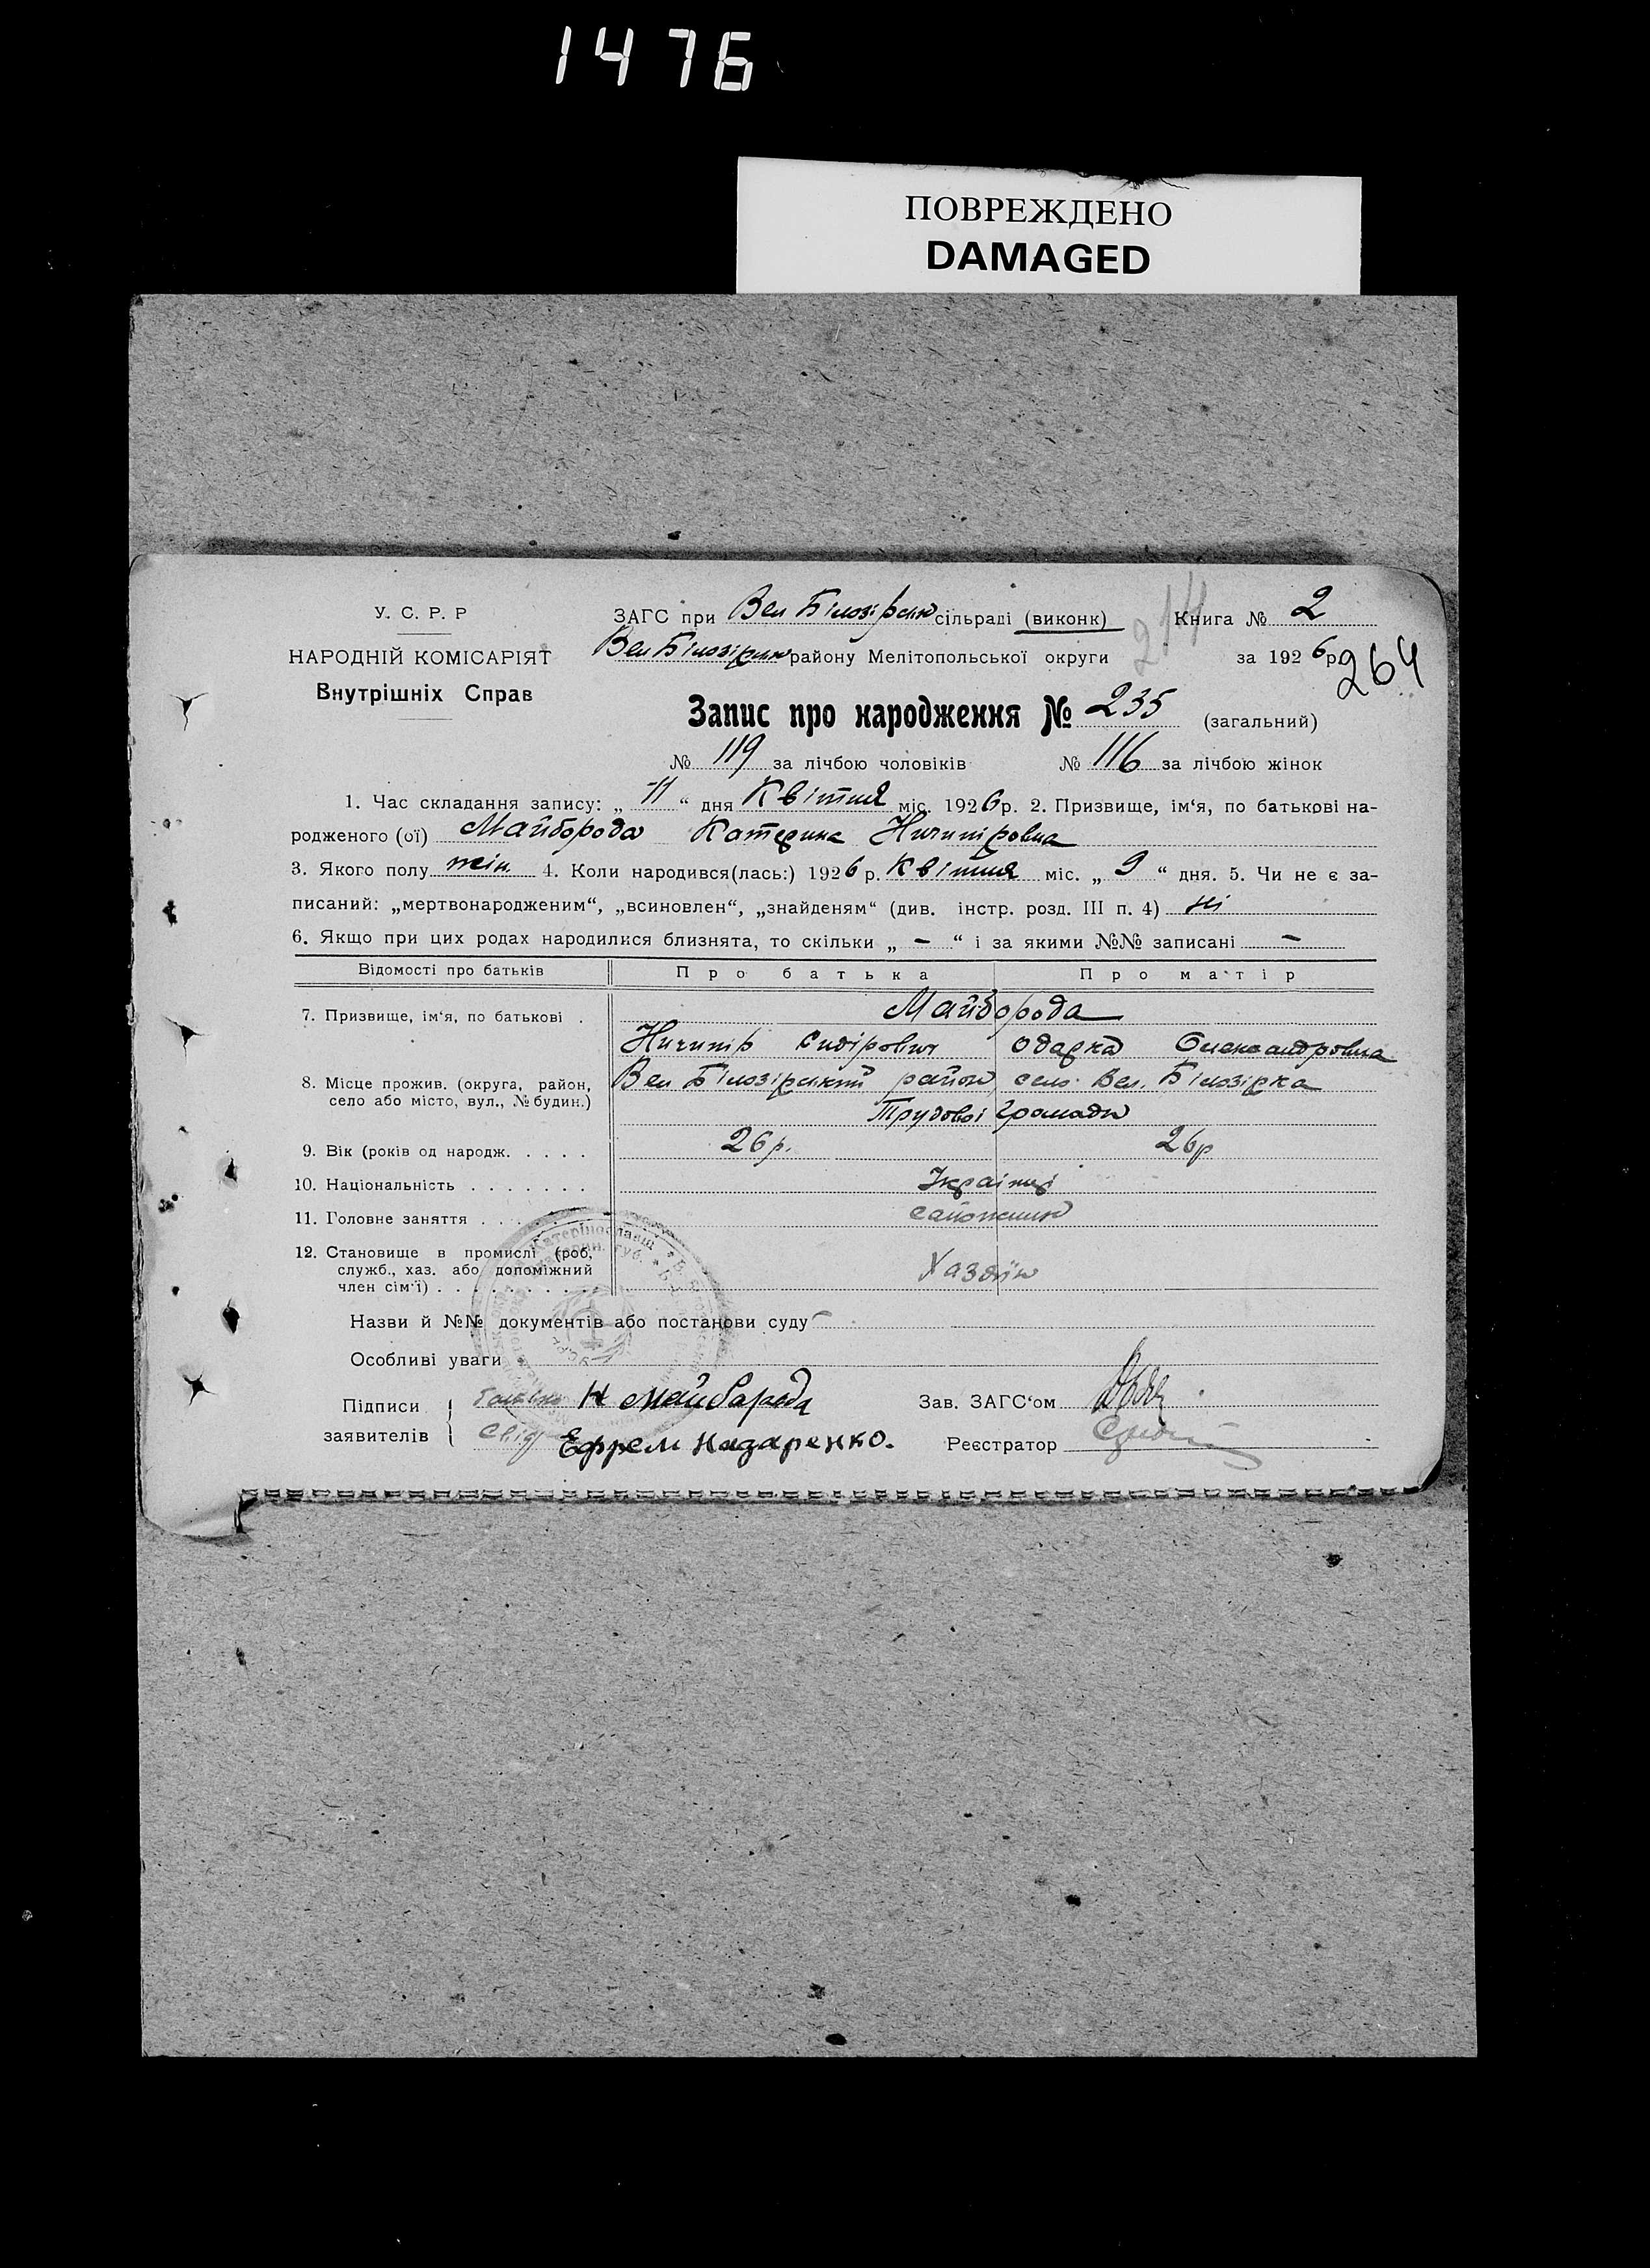 1476
ПОВРЕЖДЕНО
DAMAGED
У. С. Р. Р
ЗАГС при Вел Білозірськ сільраді (виконк)
214
Книга № 2
НАРОДНІЙ КОМІСАРІЯТ
Вел Білозірськ району Мелітопольської округи
за 1926р
264
Внутрішніх Справ
Запис про народження № 235 (загальний)
№ 119 за лічбою чоловіків № 116 за лічбою жінок
1. Час складання запису: „11“ дня Квітня міс. 1926р. 2. Призвище, ім‘я, по батькові на-
родженого (ої) Майборода Катерина Ничипіровна
3. Якого полу жін. 4. Коли народився(лась:) 1926 р. Квітня міс. „9“ дня. 5. Чи не є за-
писаний: „мертвонародженим“, „всиновлен“, „знайденям“ (див. інстр. розд. III п. 4) ні
6. Якщо при цих родах народилися близнята, то скільки „-“ і за якими №№ записані -
Відомості про батьків Про батька Про матір
7. Призвище, ім‘я, по батькові . Майборода
Ничипір Сидірович Одарка Олександровна
8. Місце прожив. (округа, район,
село або місто, вул., № будин.)
Вел Білозірський район село Вел. Білозірка
Трудової громади
9. Вік (років од народж. . . . . 26 р. 26р
10. Національність . . . . . . . Українці
11. Головне заняття . . . . . .
12. Становище в промислі (роб,
служб., хаз. або допоміжний
член сім‘ї) . . . . . . . . .
Хазяїн
Назви й №№ документів або постанови суду
Особливі уваги
Підписи
заявителів
батько Н Майбарода
Свід Ефрем Назаренко.
Зав. ЗАГС‘ом
Реєстратор